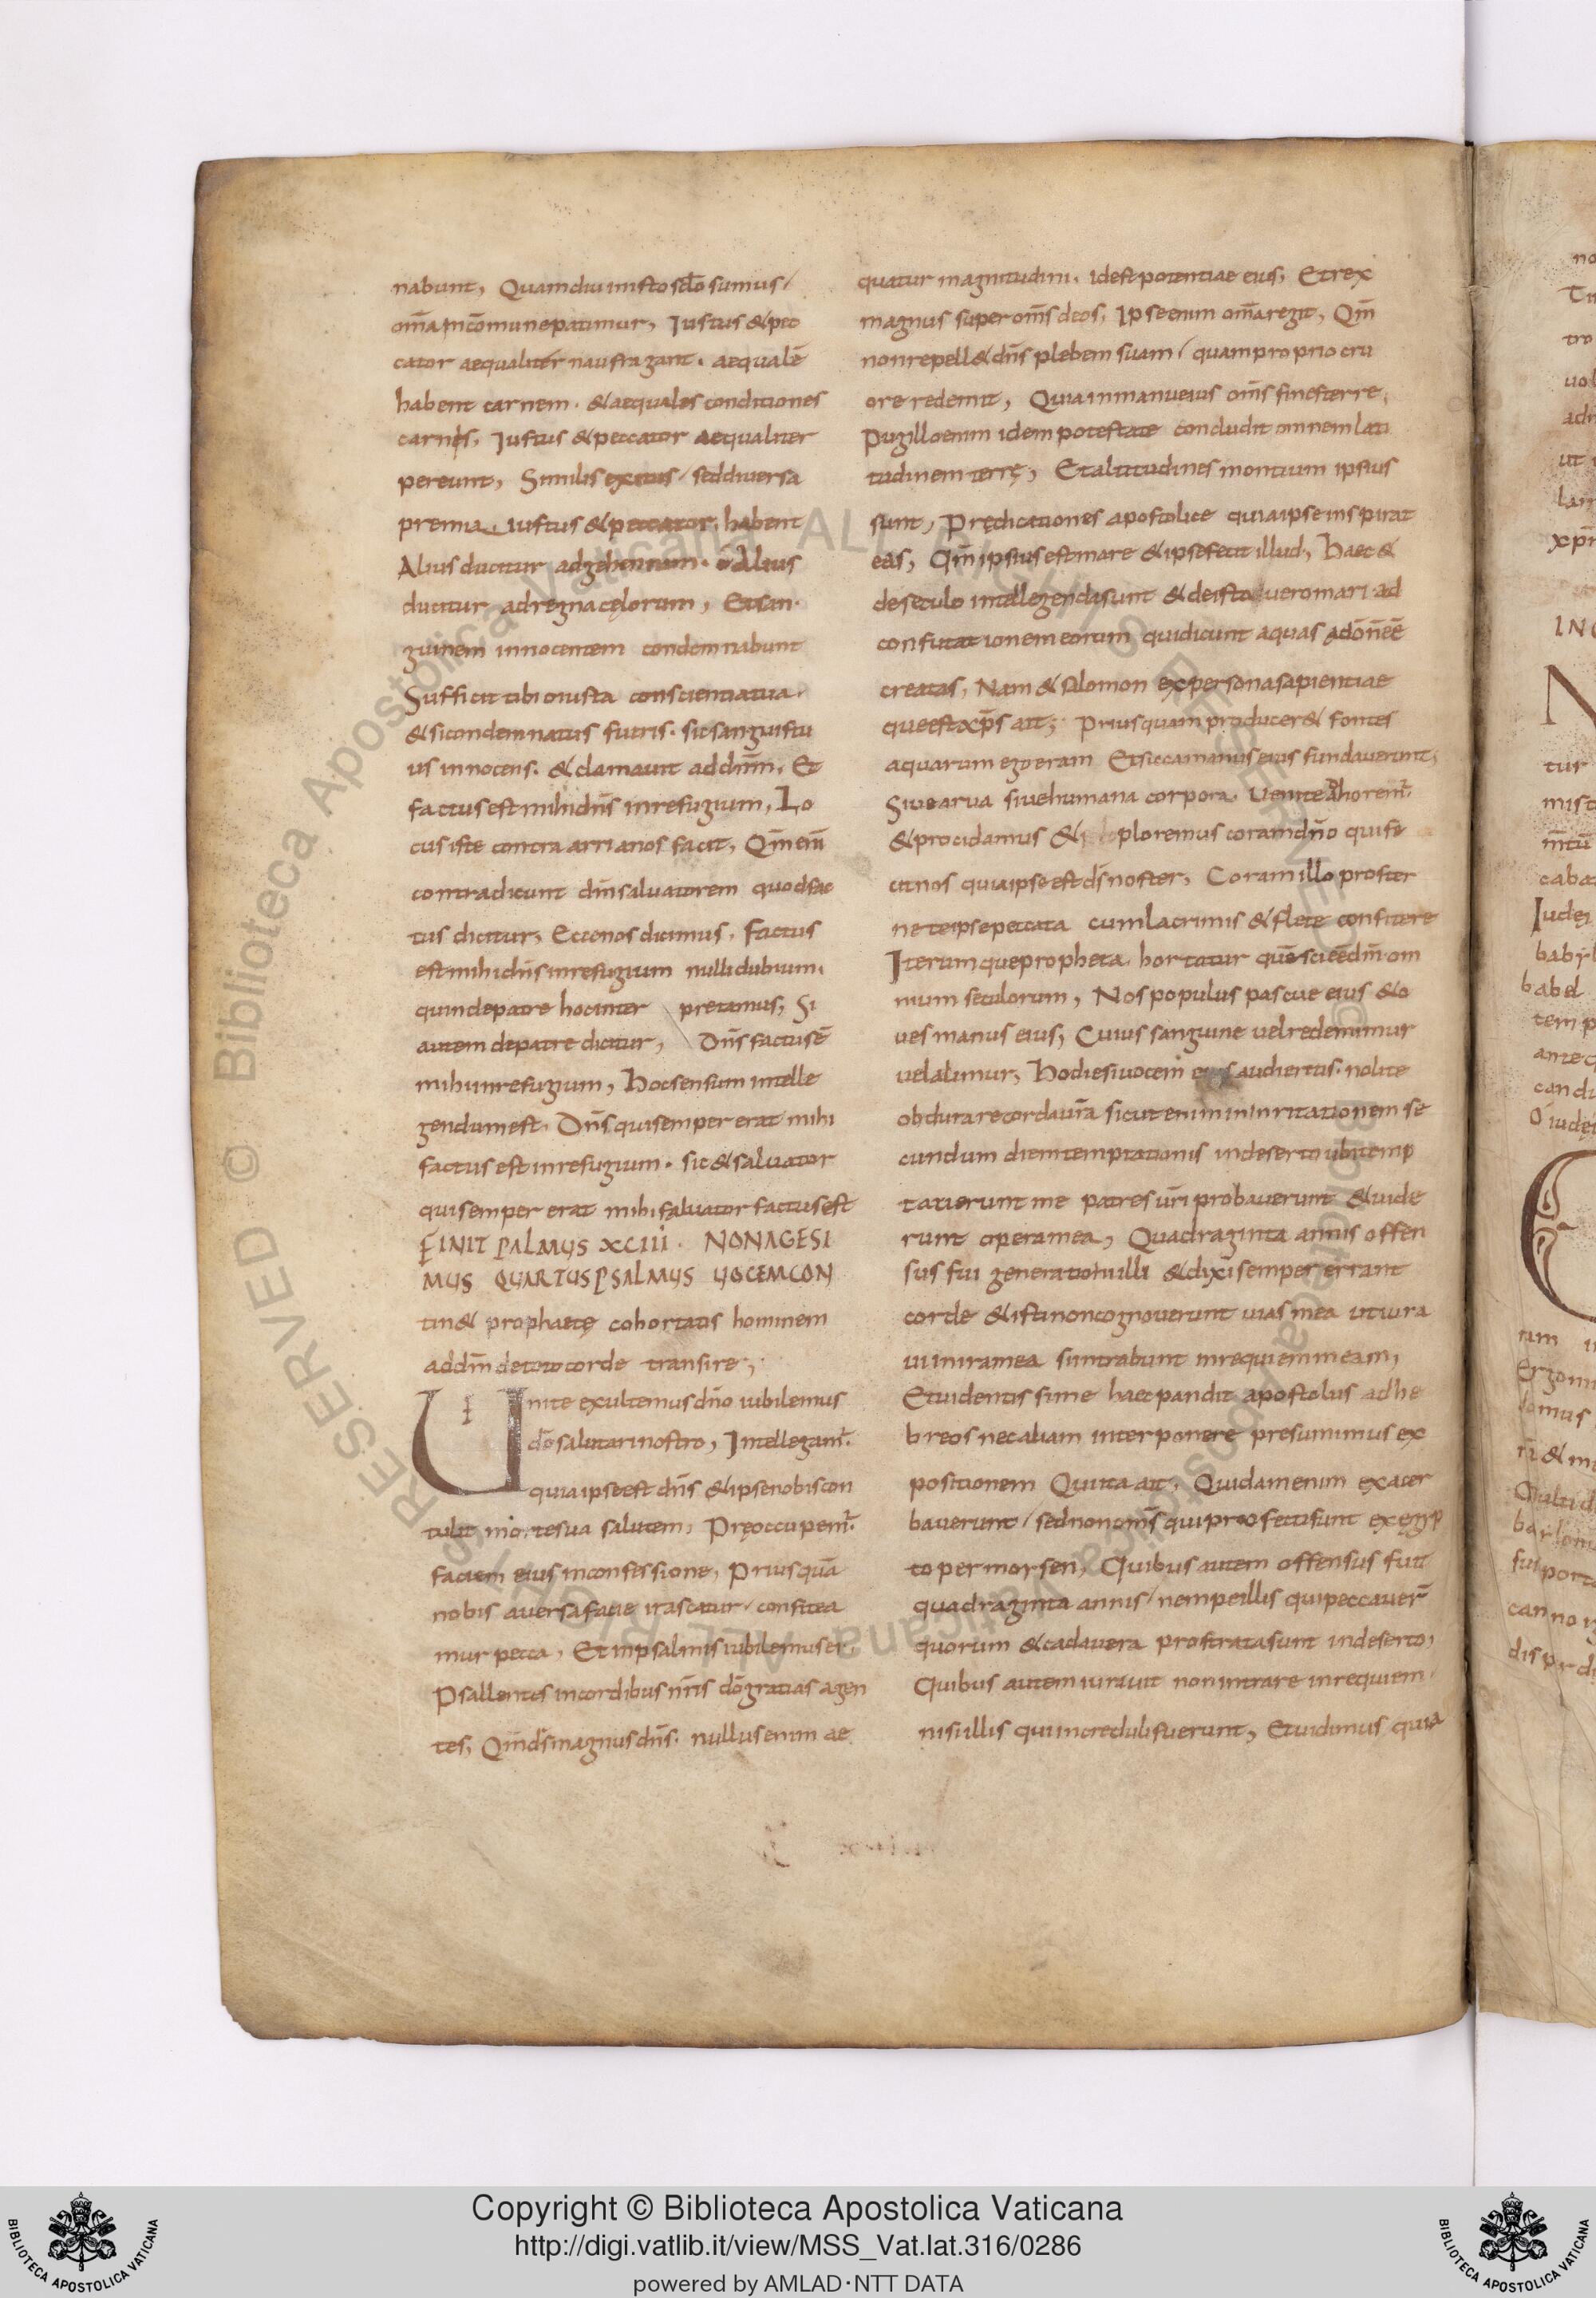 nabunt, Quamdiu in isto scło sumus/
om̄a in cōmune patimur, Iustus & pec
cator aequaliter naufragant. aequalē
habent carnem. & aequales conditiones
carnis, Iustus & peccator aequaliter
pereunt, Similis exitus/ sed diversa
premia iustus & peccator habent
Alius ducitur ad gehennam. Alius
ducitur ad regna cęlorum, Et san
guinem innocentem condemnabunt
Sufficit tibi o iusta conscientia tua.
& si condemnatus fueris. sic sanguis tu
us innocens. & clamavit ad dn̄m, Et
factus est mihi dn̄s in refugium, Lo
cus iste contra arrianos facit, Qm̄ eni̅
contradicunt dn̄m salvatorem quod fac
tus dicitur, Ecce nos dicimus, Factus
est mihi dn̄s in refugium nulli dubium.
quin de patre hoc inter pretamus, Si
autem de patre dicitur, Dn̄s factus ē
mihi in refugium, Hoc sensum intelle
gendum est. Dn̄s qui semper erat mihi
factus est in refugium. sic & salvator
qui semper erat mihi salvator factus est
FINIT PALMUS XCIII. NONAGESI
MUS QUARTUS PSALMUS UOCEM CON
tin& prophaetę cohortatis hominem
ad dn̄m de toto corde transire,
Uenite exultemus dn̄o iubilemus
dō salutari nostro, Intellegam̄.
quia ipse est dn̄s & ipse nobis con
tulit morte sua salutem, Pręoccupem̄.
faciem eius in confessione, Prius quā
nobis aversa facie irascatur/ confitea
mur pecca, Et in psalmis iubilemus ei.
Psallentes in cordibus nr̄is dō gratias agen
tes, Qm̄ ds̄ magnus dn̄s. nullus enim ae
quatur magnitudini. id est potentiae eius, Et rex
magnus super om̄s deos, Ipse enim om̄a regit, Qm̄
non repell& dn̄s plebem suam/ quam proprio cru
ore redemit, Quia in manu eius om̄s fines terre.
Pugillo enim idem potestate concludit omnem lati
tudinem terrę, Et altitudines montium ipsius
sunt, Prędicationes apostolice quia ipse inspirat
eas, Qm̄ ipsius est mare & ipse fecit illud, Haec &
de seculo intellegenda sunt & de isto vero mari ad
confutationem eorum qui dicunt aquas
creatas, Nam & salomon ex persona sapientiae
que est xp̄s ait, Prius quam producer& fontes
aquarum ego eram Et siccam manus eius fundaverunt,
Sive arva sive humana corpora. Uenite
& procidamus & ploremus coram dn̄o qui fe
cit nos quia ipse est ds̄ noster, Coram illo proster
ne te ipse peccata cum lacrimis & flete confitere
Iterumque propheta hortatur
nium seculorum, Nos populus pascue eius & o
ves manus eius, Cuius sanguine vel redemimur
vel alimur, Hodie si vocem eius audieritis. nolite
obdurare corda vr̄a sicut enim in inritationem se
cundum diem temptationis in deserto ubi temp
taverunt me patres ur̄i probaverunt & vide
runt opera mea, Quadraginta annis offen
sus fui generationi illi & dixi semper errant
corde & isti non cognoverunt vias mea ut iura
ui in ira mea si intrabunt in requiem meam,
Evidentissime haec pandit apostolus ad he
breos nec aliam interponere presumimus ex
positionem Qui ita ait, Quidam enim exacer
baverunt/ sed non om̄s qui profecti sunt ex egyp
to per morsen, Quibus autem offensus fuit
quadraginta annis/ nempe illis qui peccaver̄
quorum & cadavera prostrata sunt in deserto,
Quibus autem iuravit non intrare in requiem/
nisi illis qui increduli fuerunt, Et vidimus quia
Copyright © Biblioteca Apostolica Vaticana
http://digi.vatlib.it/view/MSS_Vat.lat.316/0286
powered by AMLAD·NTT DATA